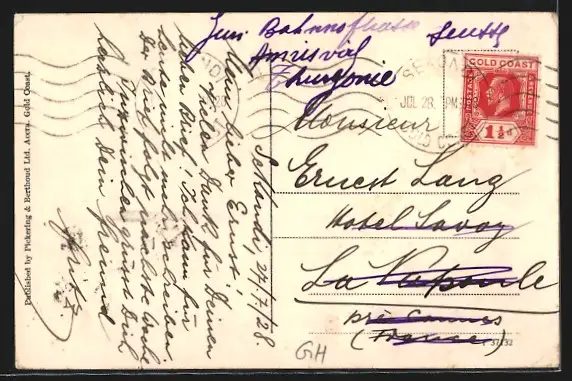 Zur Bahnhofstrasse
Amriswil
Thurgovie
SEKONDI
JUL 28. PM
GOLD COAST
POSTAGE
REVENUE
1½d
Monsieur
Ernest Lang
Hotel Savoy
La Napoule
près Cannes
(France)
37132
GH
Sekondi, 27/7/28.
Mein lieber Ernst!
Vielen Dank für Deinen
lieben Brief! Ich kann für
heute nicht mehr schreiben.
Der Brief folgt nächste Woche
Inzwischen grüsst Dich
herzlich Dein Freund
Fritz
Published by Pickering & Berthoud Ltd. Accra. Gold Coast.